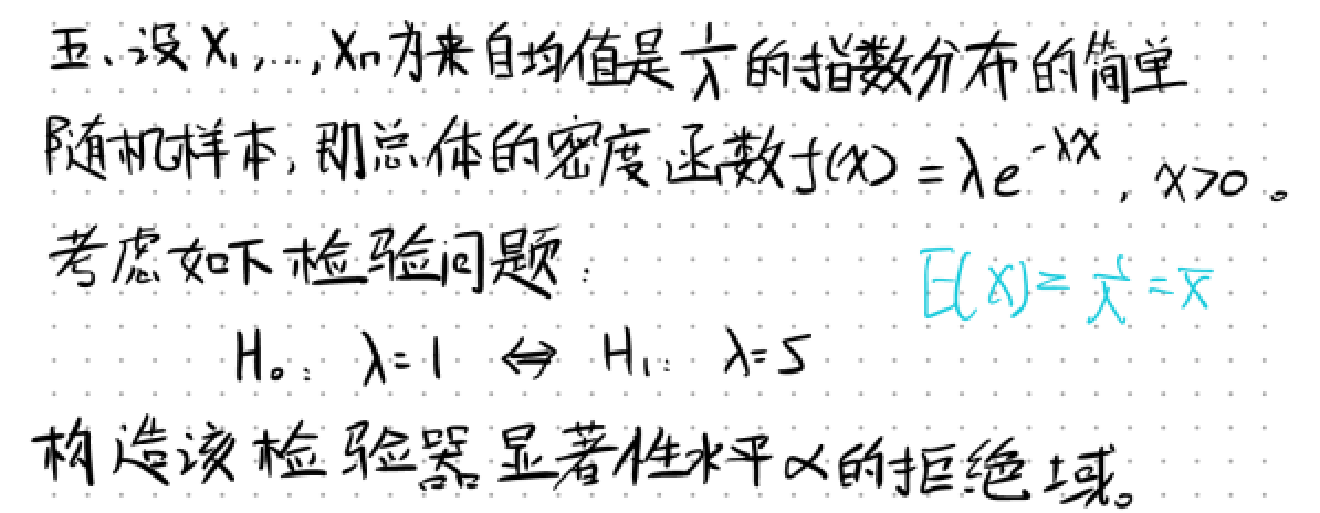 五、设X₁,...,Xn为来自均值是1/λ的指数分布的简单
随机样本,即总体的密度函数f(x)=λe^{-λx}, x>0。
考虑如下检验问题:
E(X)=1/λ=x̄
H₀: λ=1 ⇔ H₁: λ=5
构造该检验器显著性水平α的拒绝域。